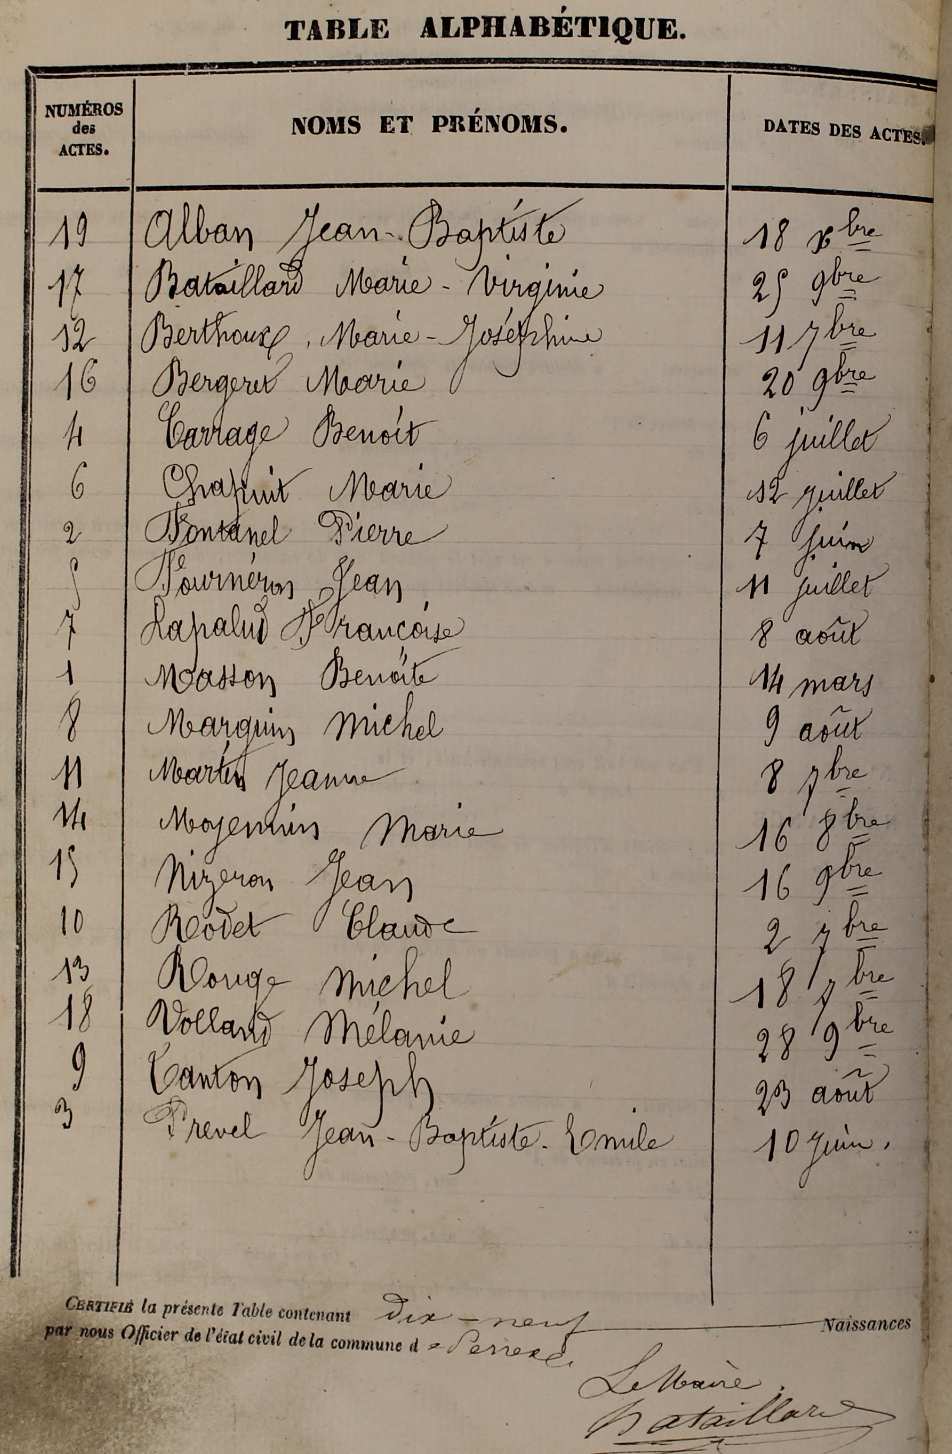 TABLE ALPHABÉTIQUE.
NUMÉROS des ACTES. NOMS ET PRÉNOMS. DATES DES ACTES.
19 Alban Jean-Baptiste 18 xbre
17 Bataillard Marie-Virginie 25 9bre
12 Berthoux, Marie-Joséphine 11 7bre
16 Bergeret Marie 20 9bre
4 Carrage Benoit 6 juillet
6 Chapuit Marie 12 juillet
2 Fontanel Pierre 7 juin
5 Fournéron Jean 11 juillet
7 Lapalud Françoise 8 août
1 Masson Benoîte 14 mars
8 Marguin Michel 9 août
11 Martin Jeanne 8 7bre
14 Moyennin Marie 16 8bre
15 Nizeron Jean 16 9bre
10 Rodet Claude 2 7bre
13 Rouge Michel 18 7bre
18 Volland Mélanie 28 9bre
9 Canton Joseph 23 août
3 Prevel Jean-Baptiste-Emile 10 juin.
CERTIFIÉ la présente Table contenant Dix-neuf Naissances
par nous Officier de l'état civil de la commune d e Perrex
Le Maire.
Bataillard